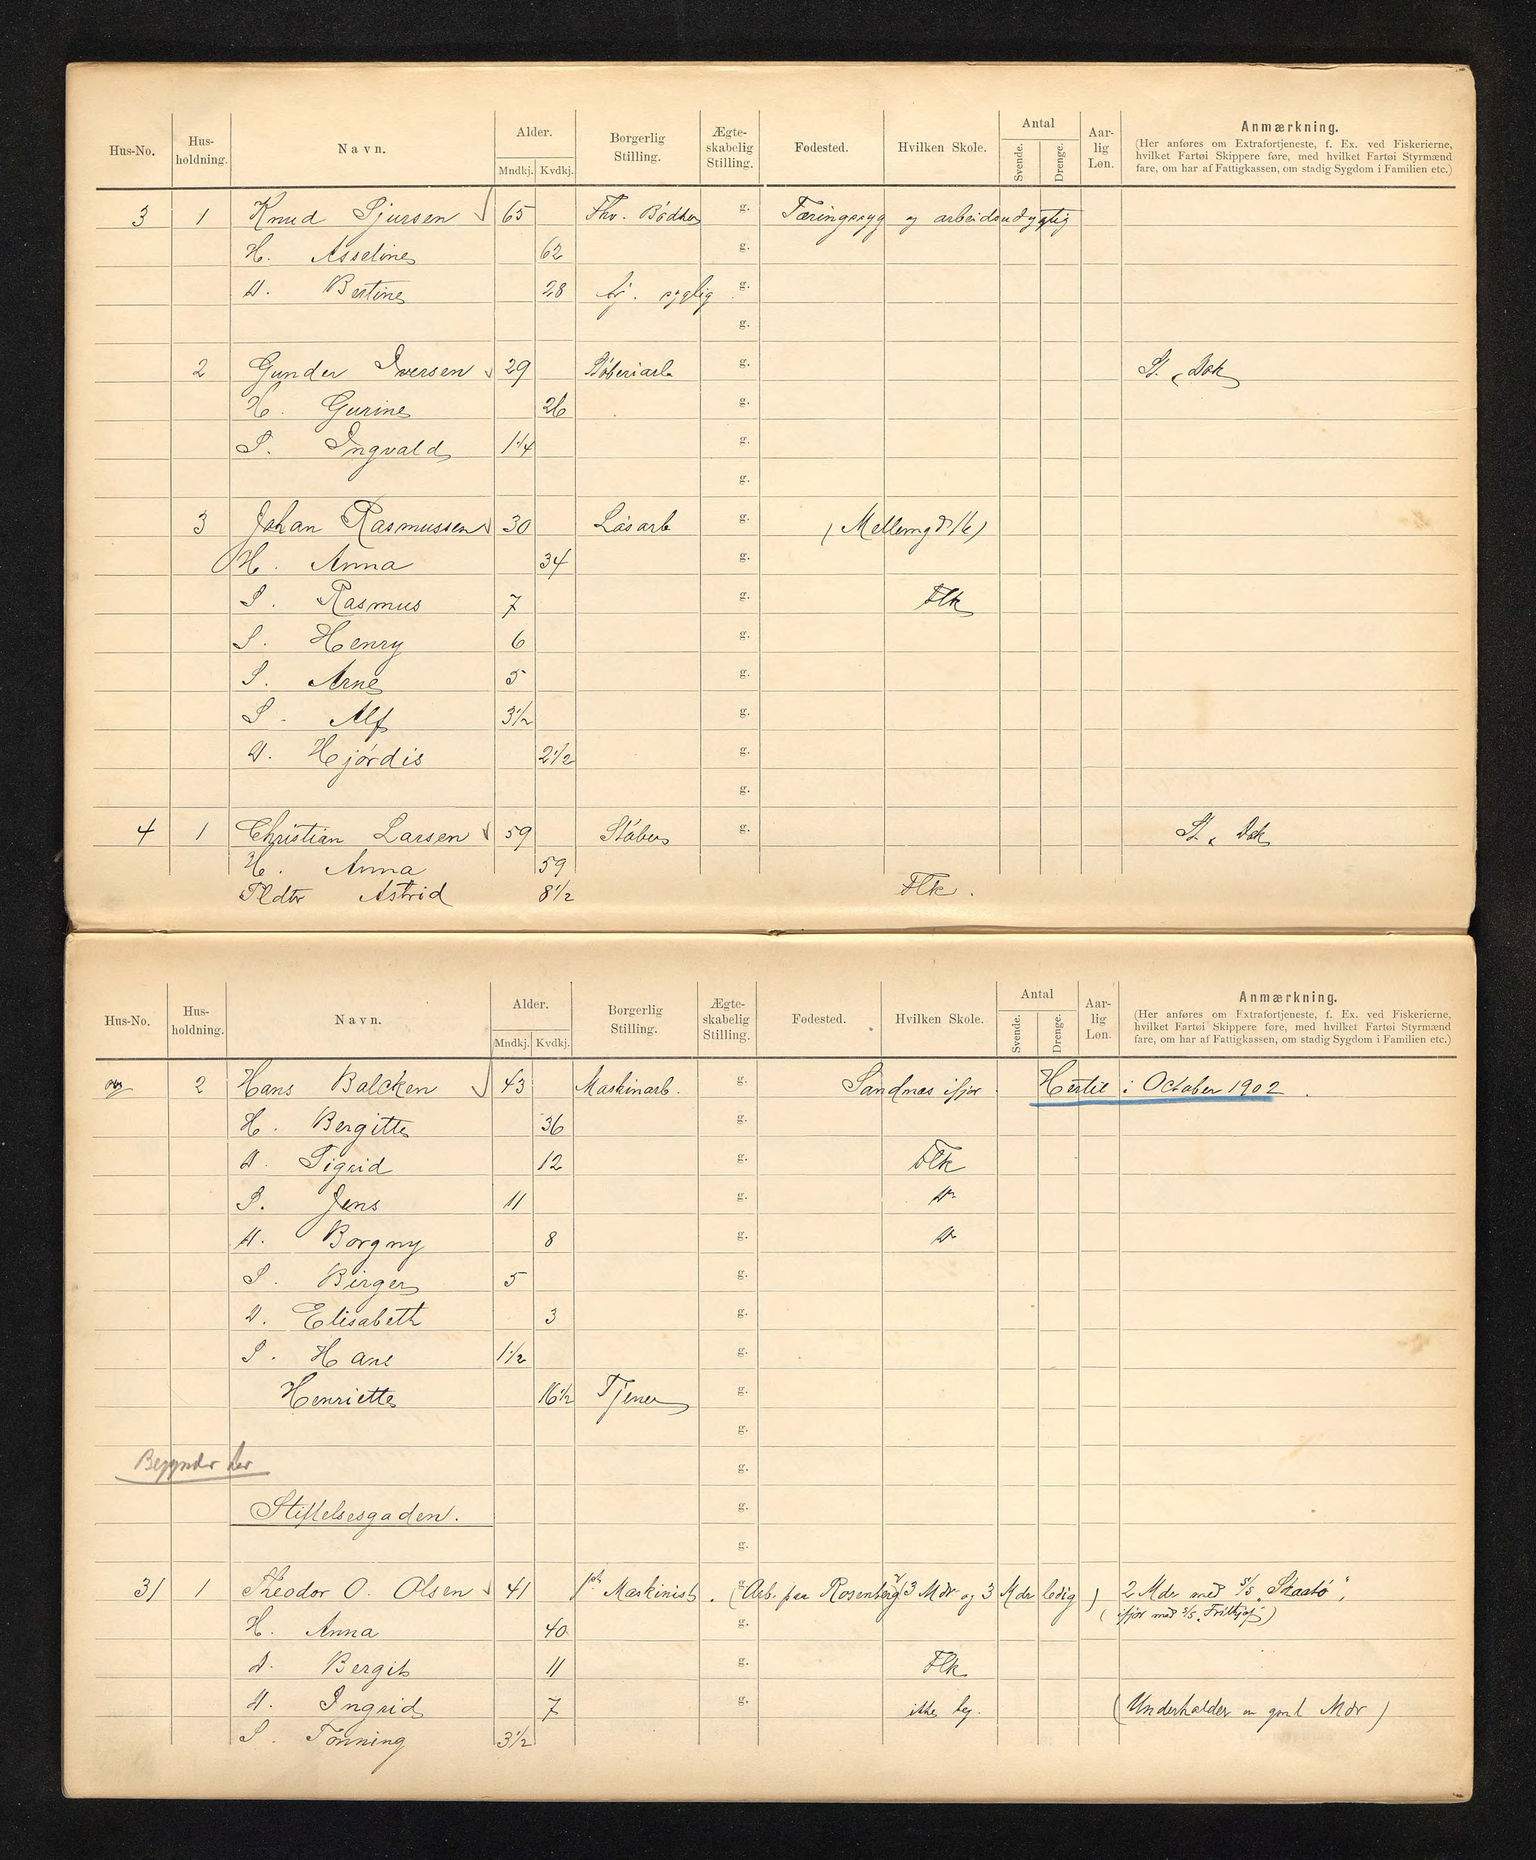 Hus-No. Hus-holdning. Navn. Alder. Mndkj. Kvdkj. Borgerlig Stilling. Ægte-skabelig Stilling. Fødested. Hvilken Skole. Antal Svende. Drenge. Aar-lig Løn. Anmærkning.
(Her anføres om Extrafortjeneste, f. Ex. ved Fiskerierne,
hvilket Fartøi Skippere føre, med hvilket Fartøi Styrmænd
fare, om har af Fattigkassen, om stadig Sygdom i Familien etc.)
3 1 Knud Sjursen 65 Fhv. Bødker g. Tæringssyg og arbeidsudygtig
H. Asseline 62 g.
D. Bertine 28 sygelig g.
g.
2 Gunder Iversen 29 Støberiarb g. St. Dok
H. Gurine 26 g.
S. Ingvald 1 1/4 g.
g.
3 Johan Rasmussen 30 Løsarb g. (Mellemgd 16)
H. Anna 34 g.
S. Rasmus 7 g. Flk
S. Henry 6 g.
S. Arne 5 g.
S. Alf 3 1/2 g.
D. Hjørdis 2 1/2 g.
g.
4 1 Christian Larsen 59 Støber g. St. Dok
H. Anna 59
Pldtr Astrid 8 1/2 Flk.
Hus-No. Hus-holdning. Navn. Alder. Mndkj. Kvdkj. Borgerlig Stilling. Ægte-skabelig Stilling. Fødested. Hvilken Skole. Antal Svende. Drenge. Aar-lig Løn. Anmærkning.
(Her anføres om Extrafortjeneste, f. Ex. ved Fiskerierne,
hvilket Fartøi Skippere føre, med hvilket Fartøi Styrmænd
fare, om har af Fattigkassen, om stadig Sygdom i Familien etc.)
2 Hans Balcken 43 Maskinarb. g. Sandnæs ifjor. Hertil i October 1902.
H. Bergitte 36 g.
D. Sigrid 12 g. Flk
S. Jens 11 g. Do
D. Borgny 8 g. Do
S. Birger 5 g.
D. Elisabeth 3 g.
S. Hans 1 1/2 g.
Henriette 16 1/2 Tjener g.
g.
Begynder her g.
Stiftelsesgaden. g.
g.
31 1 Theodor O. Olsen 41 pt Maskinist. g. (Arb. paa Rosenberg 3 Mdr og 3 Mdr ledig) 2 Mdr med S/S "Skaatø",
(ifjor med S/S "Frithjof")
H. Anna 40 g.
D. Bergit 11 g. Flk
D. Ingrid 7 g. ikke beg. (Underholder en gml Mor)
S. Tønning 3 1/2